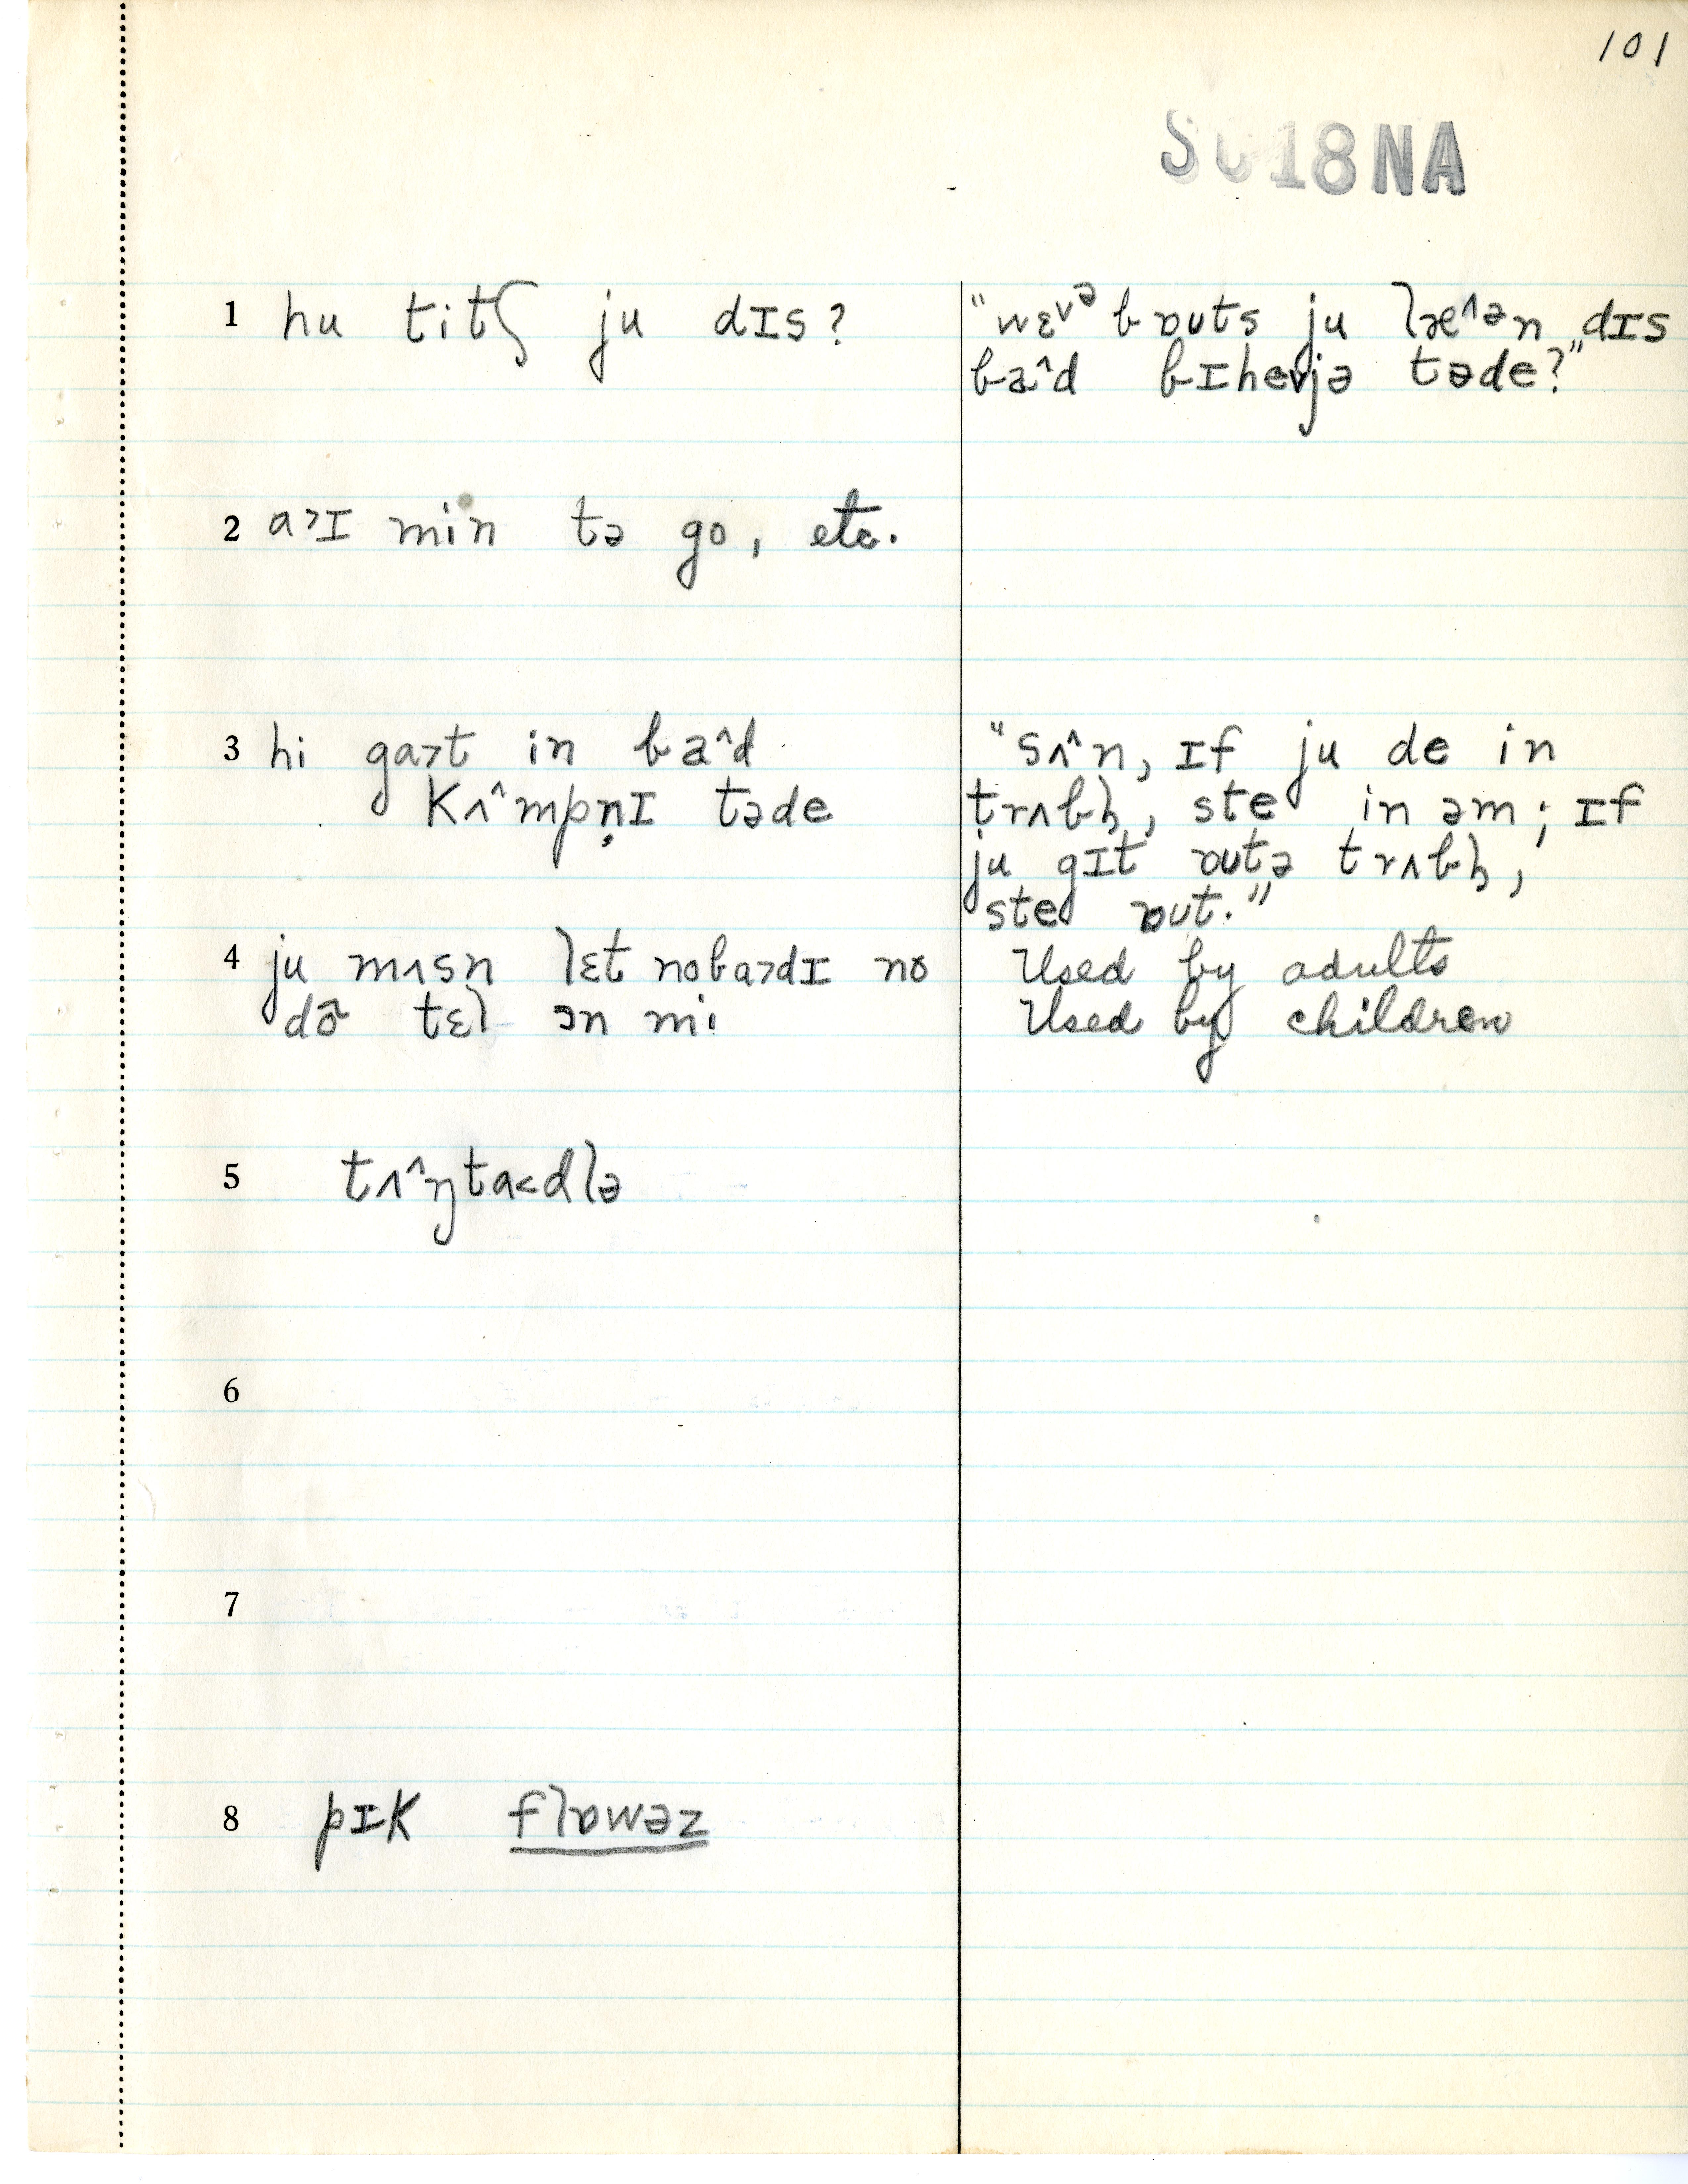 101
SC18NA
1 hu titʃ ju dɪs?
"wɛvᵊ bɒuts ju læ^ən dɪs
ba^d bɪhevjə təde?"
2 a>ɪ min tə go, etc.
3 hi ga>t in ba^d
kʌ^mpn̩ɪ təde
"sʌ^n, ɪf ju de in
trʌbl̩, ste in əm; ɪf
ju gɪt ɒutə trʌbl̩,
ste ɒut."
4 ju mʌsn lɛt noba>dɪ no
dõ tɛl ɔn mi
Used by adults
Used by children
5 tʌ^ŋta<dlə
6
7
8 pɪk flɒwəz